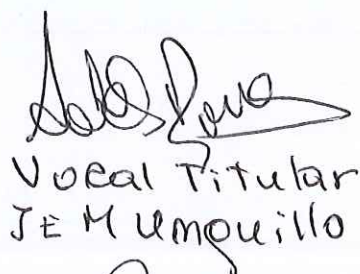 Vocal Titular
JEM Unquillo